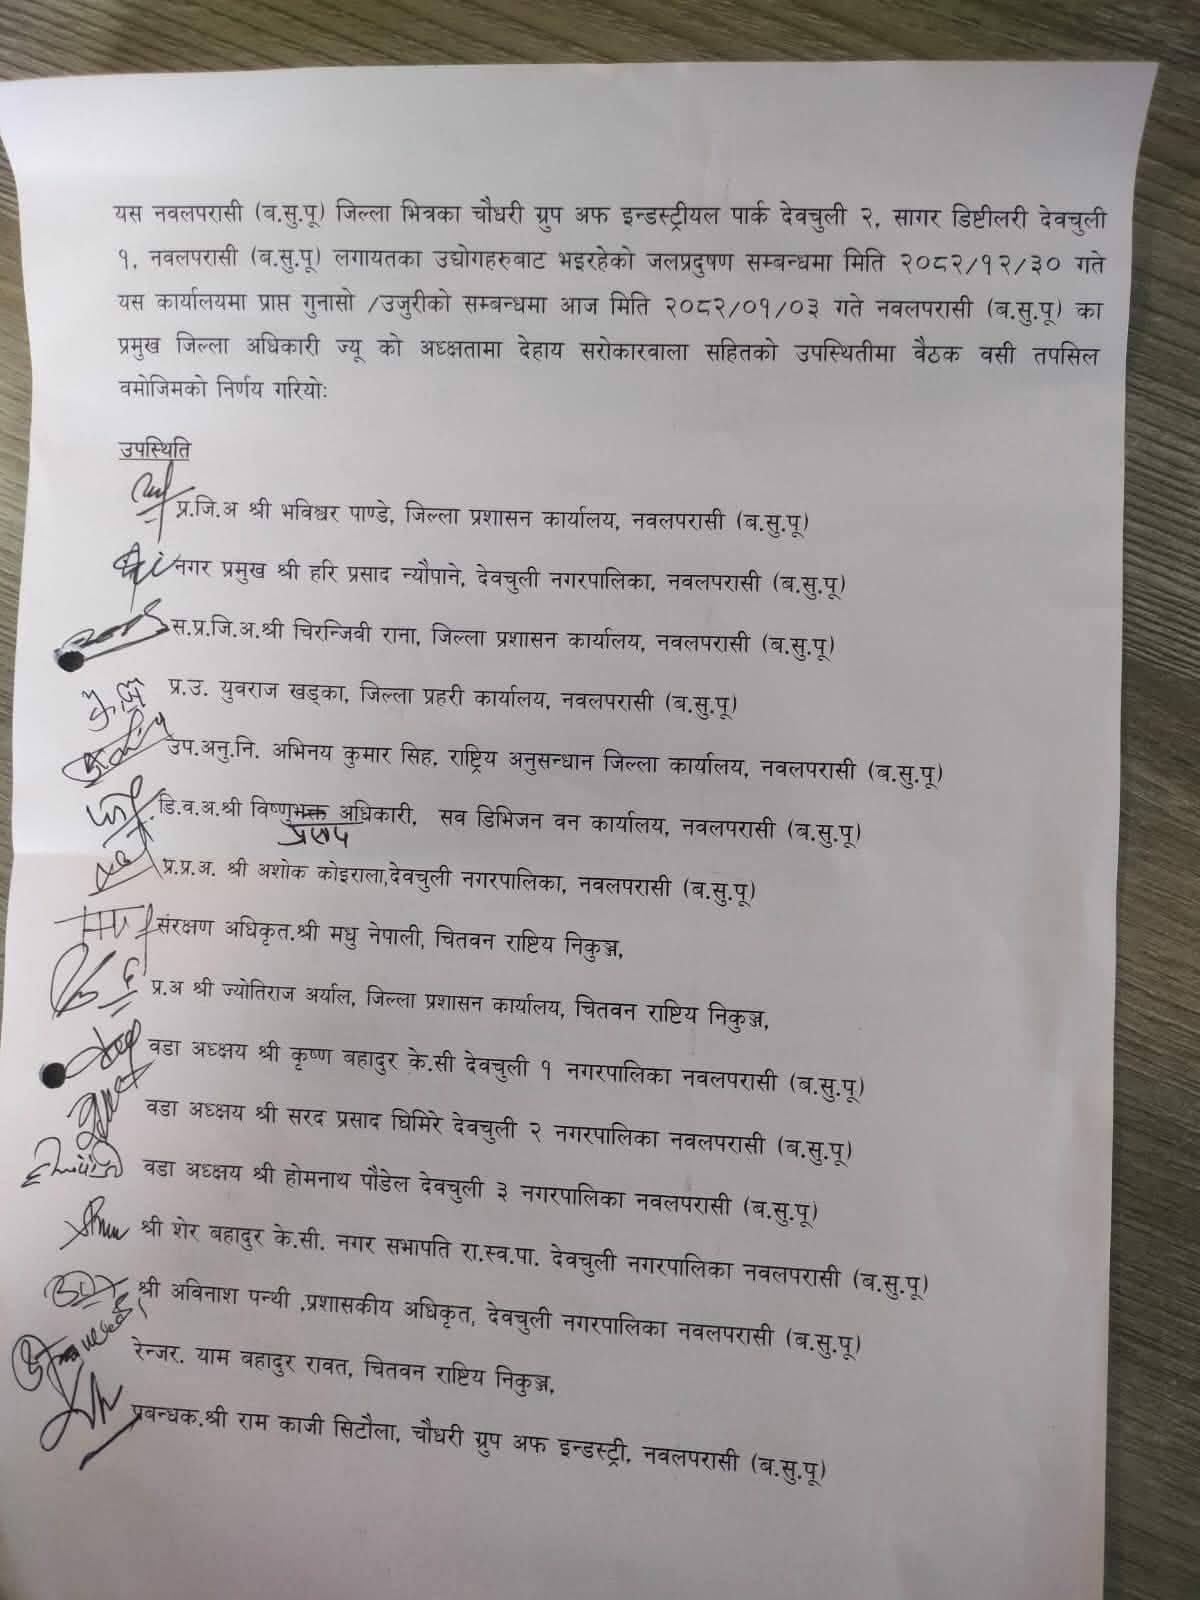 यस नवलपरासी (ब.सु.पू) जिल्ला भित्रका चौधरी ग्रुप अफ इन्डस्ट्रीयल पार्क देवचुली २, सागर डिष्टीलरी देवचुली
१, नवलपरासी (ब.सु.पू) लगायतका उद्योगहरुबाट भइरहेको जलप्रदुषण सम्बन्धमा मिति २०८२/१२/३० गते
यस कार्यालयमा प्राप्त गुनासो /उजुरीको सम्बन्धमा आज मिति २०८२/०१/०३ गते नवलपरासी (ब.सु.पू) का
प्रमुख जिल्ला अधिकारी ज्यू को अध्क्षतामा देहाय सरोकारवाला सहितको उपस्थितीमा वैठक वसी तपसिल
वमोजिमको निर्णय गरियोः
उपस्थिति
प्र.जि.अ श्री भविश्वर पाण्डे, जिल्ला प्रशासन कार्यालय, नवलपरासी (ब.सु.पू)
नगर प्रमुख श्री हरि प्रसाद न्यौपाने, देवचुली नगरपालिका, नवलपरासी (ब.सु.पू)
स.प्र.जि.अ.श्री चिरन्जिवी राना, जिल्ला प्रशासन कार्यालय, नवलपरासी (ब.सु.पू)
प्र.उ. युवराज खड्का, जिल्ला प्रहरी कार्यालय, नवलपरासी (ब.सु.पू)
उप.अनु.नि. अभिनय कुमार सिह, राष्ट्रिय अनुसन्धान जिल्ला कार्यालय, नवलपरासी (ब.सु.पू)
डि.व.अ.श्री विष्णुभक्त अधिकारी, सव डिभिजन वन कार्यालय, नवलपरासी (ब.सु.पू)
प्रसाद
प्र.प्र.अ. श्री अशोक कोइराला,देवचुली नगरपालिका, नवलपरासी (ब.सु.पू)
संरक्षण अधिकृत.श्री मधु नेपाली, चितवन राष्टिय निकुञ्ज,
प्र.अ श्री ज्योतिराज अर्याल, जिल्ला प्रशासन कार्यालय, चितवन राष्टिय निकुञ्ज,
वडा अध्क्षय श्री कृष्ण बहादुर के.सी देवचुली १ नगरपालिका नवलपरासी (ब.सु.पू)
वडा अध्क्षय श्री सरद प्रसाद घिमिरे देवचुली २ नगरपालिका नवलपरासी (ब.सु.पू)
वडा अध्क्षय श्री होमनाथ पौडेल देवचुली ३ नगरपालिका नवलपरासी (ब.सु.पू)
श्री शेर बहादुर के.सी. नगर सभापति रा.स्व.पा. देवचुली नगरपालिका नवलपरासी (ब.सु.पू)
श्री अविनाश पन्थी ,प्रशासकीय अधिकृत, देवचुली नगरपालिका नवलपरासी (ब.सु.पू)
रेन्जर. याम बहादुर रावत, चितवन राष्टिय निकुञ्ज,
प्रबन्धक.श्री राम काजी सिटौला, चौधरी ग्रुप अफ इन्डस्ट्री, नवलपरासी (ब.सु.पू)